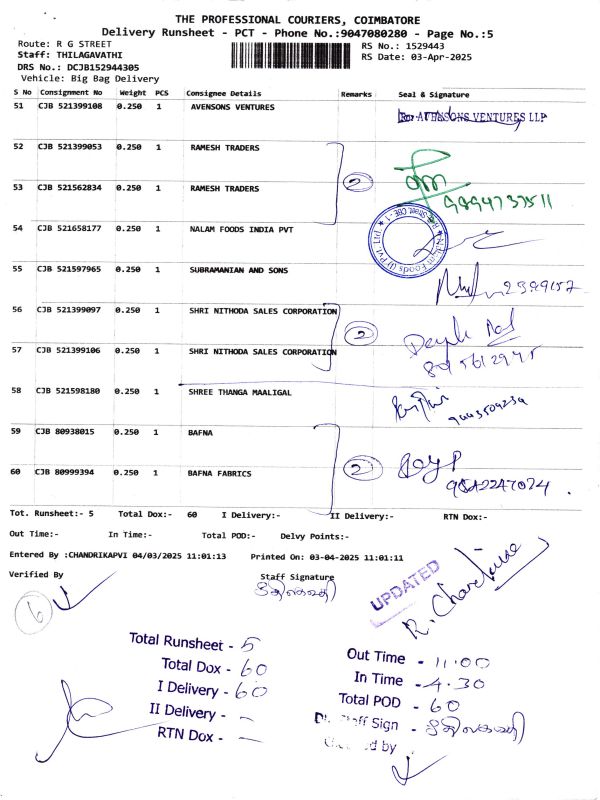 THE PROFESSIONAL COURIERS, COIMBATORE
Delivery Runsheet - PCT - Phone No.:9047080280 - Page No.:5
Route: R G STREET
RS No.: 1529443
Staff: THILAGAVATHI
RS Date: 03-Apr-2025
DRS No.: DCJB152944305
Vehicle: Big Bag Delivery
S No Consignment No Weight PCS Consignee Details Remarks Seal & Signature
51 CJB 521399108 0.250 1 AVENSONS VENTURES
For AVENSONS VENTURES LLP
52 CJB 521399053 0.250 1 RAMESH TRADERS
2
53 CJB 521562834 0.250 1 RAMESH TRADERS
9894737511
54 CJB 521658177 0.250 1 NALAM FOODS INDIA PVT
55 CJB 521597965 0.250 1 SUBRAMANIAN AND SONS
56 CJB 521399097 0.250 1 SHRI NITHODA SALES CORPORATION
2
57 CJB 521399106 0.250 1 SHRI NITHODA SALES CORPORATION
58 CJB 521598180 0.250 1 SHREE THANGA MAALIGAL
59 CJB 80938015 0.250 1 BAFNA
2
60 CJB 80999394 0.250 1 BAFNA FABRICS
9842247024
Tot. Runsheet:- 5 Total Dox:- 60 I Delivery:- II Delivery:- RTN Dox:-
Out Time:- In Time:- Total POD:- Delvy Points:-
Entered By :CHANDRIKAPVI 04/03/2025 11:01:13 Printed On: 03-04-2025 11:01:11
Verified By
Staff Signature
திலகவதி
UPDATED
6
Total Runsheet - 5
Total Dox - 60
I Delivery - 60
II Delivery - –
RTN Dox - –
Out Time - 11.00
In Time - 4.30
Total POD - 60
Staff Sign - திலகவதி
by